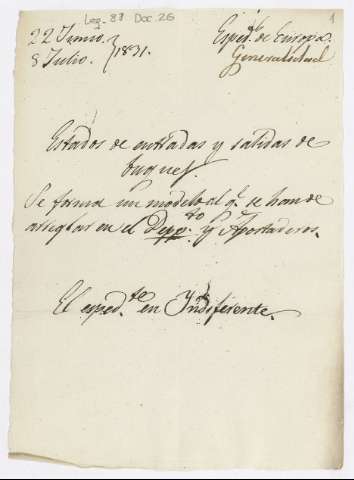 Leg. 88 Doc. 26
1
22 Junio.
8 Julio. } 1831.
Esped.te de Europa.
Generalidad
Estados de entradas y salidas de
buques.
Se forma un modelo al q.e se han de
arreglar en el Depp.to y Apostaderos.
El esped.te en Yndiferente.